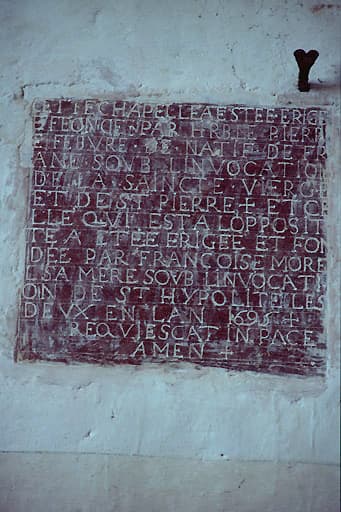 CETTE CHAPELLE A ESTEE ERIGE
ET FONCEE PAR HRBLE PIERR
LEFEBVRE NATIF DE
ANE SOUB L INVOCATION
DE LA SAINCTE VIERGE
ET DE ST PIERRE + ET CEL
LE QUI EST A LOPPOSIT
TE A ETEE ERIGEE ET FON
DEE PAR FRANCOISE MORE
L SA MERE SOUB L INVOCATI
ON DE ST HYPOLITE LES
DEVX EN LAN 1695 +
REQVIESCAT IN PACE
AMEN +